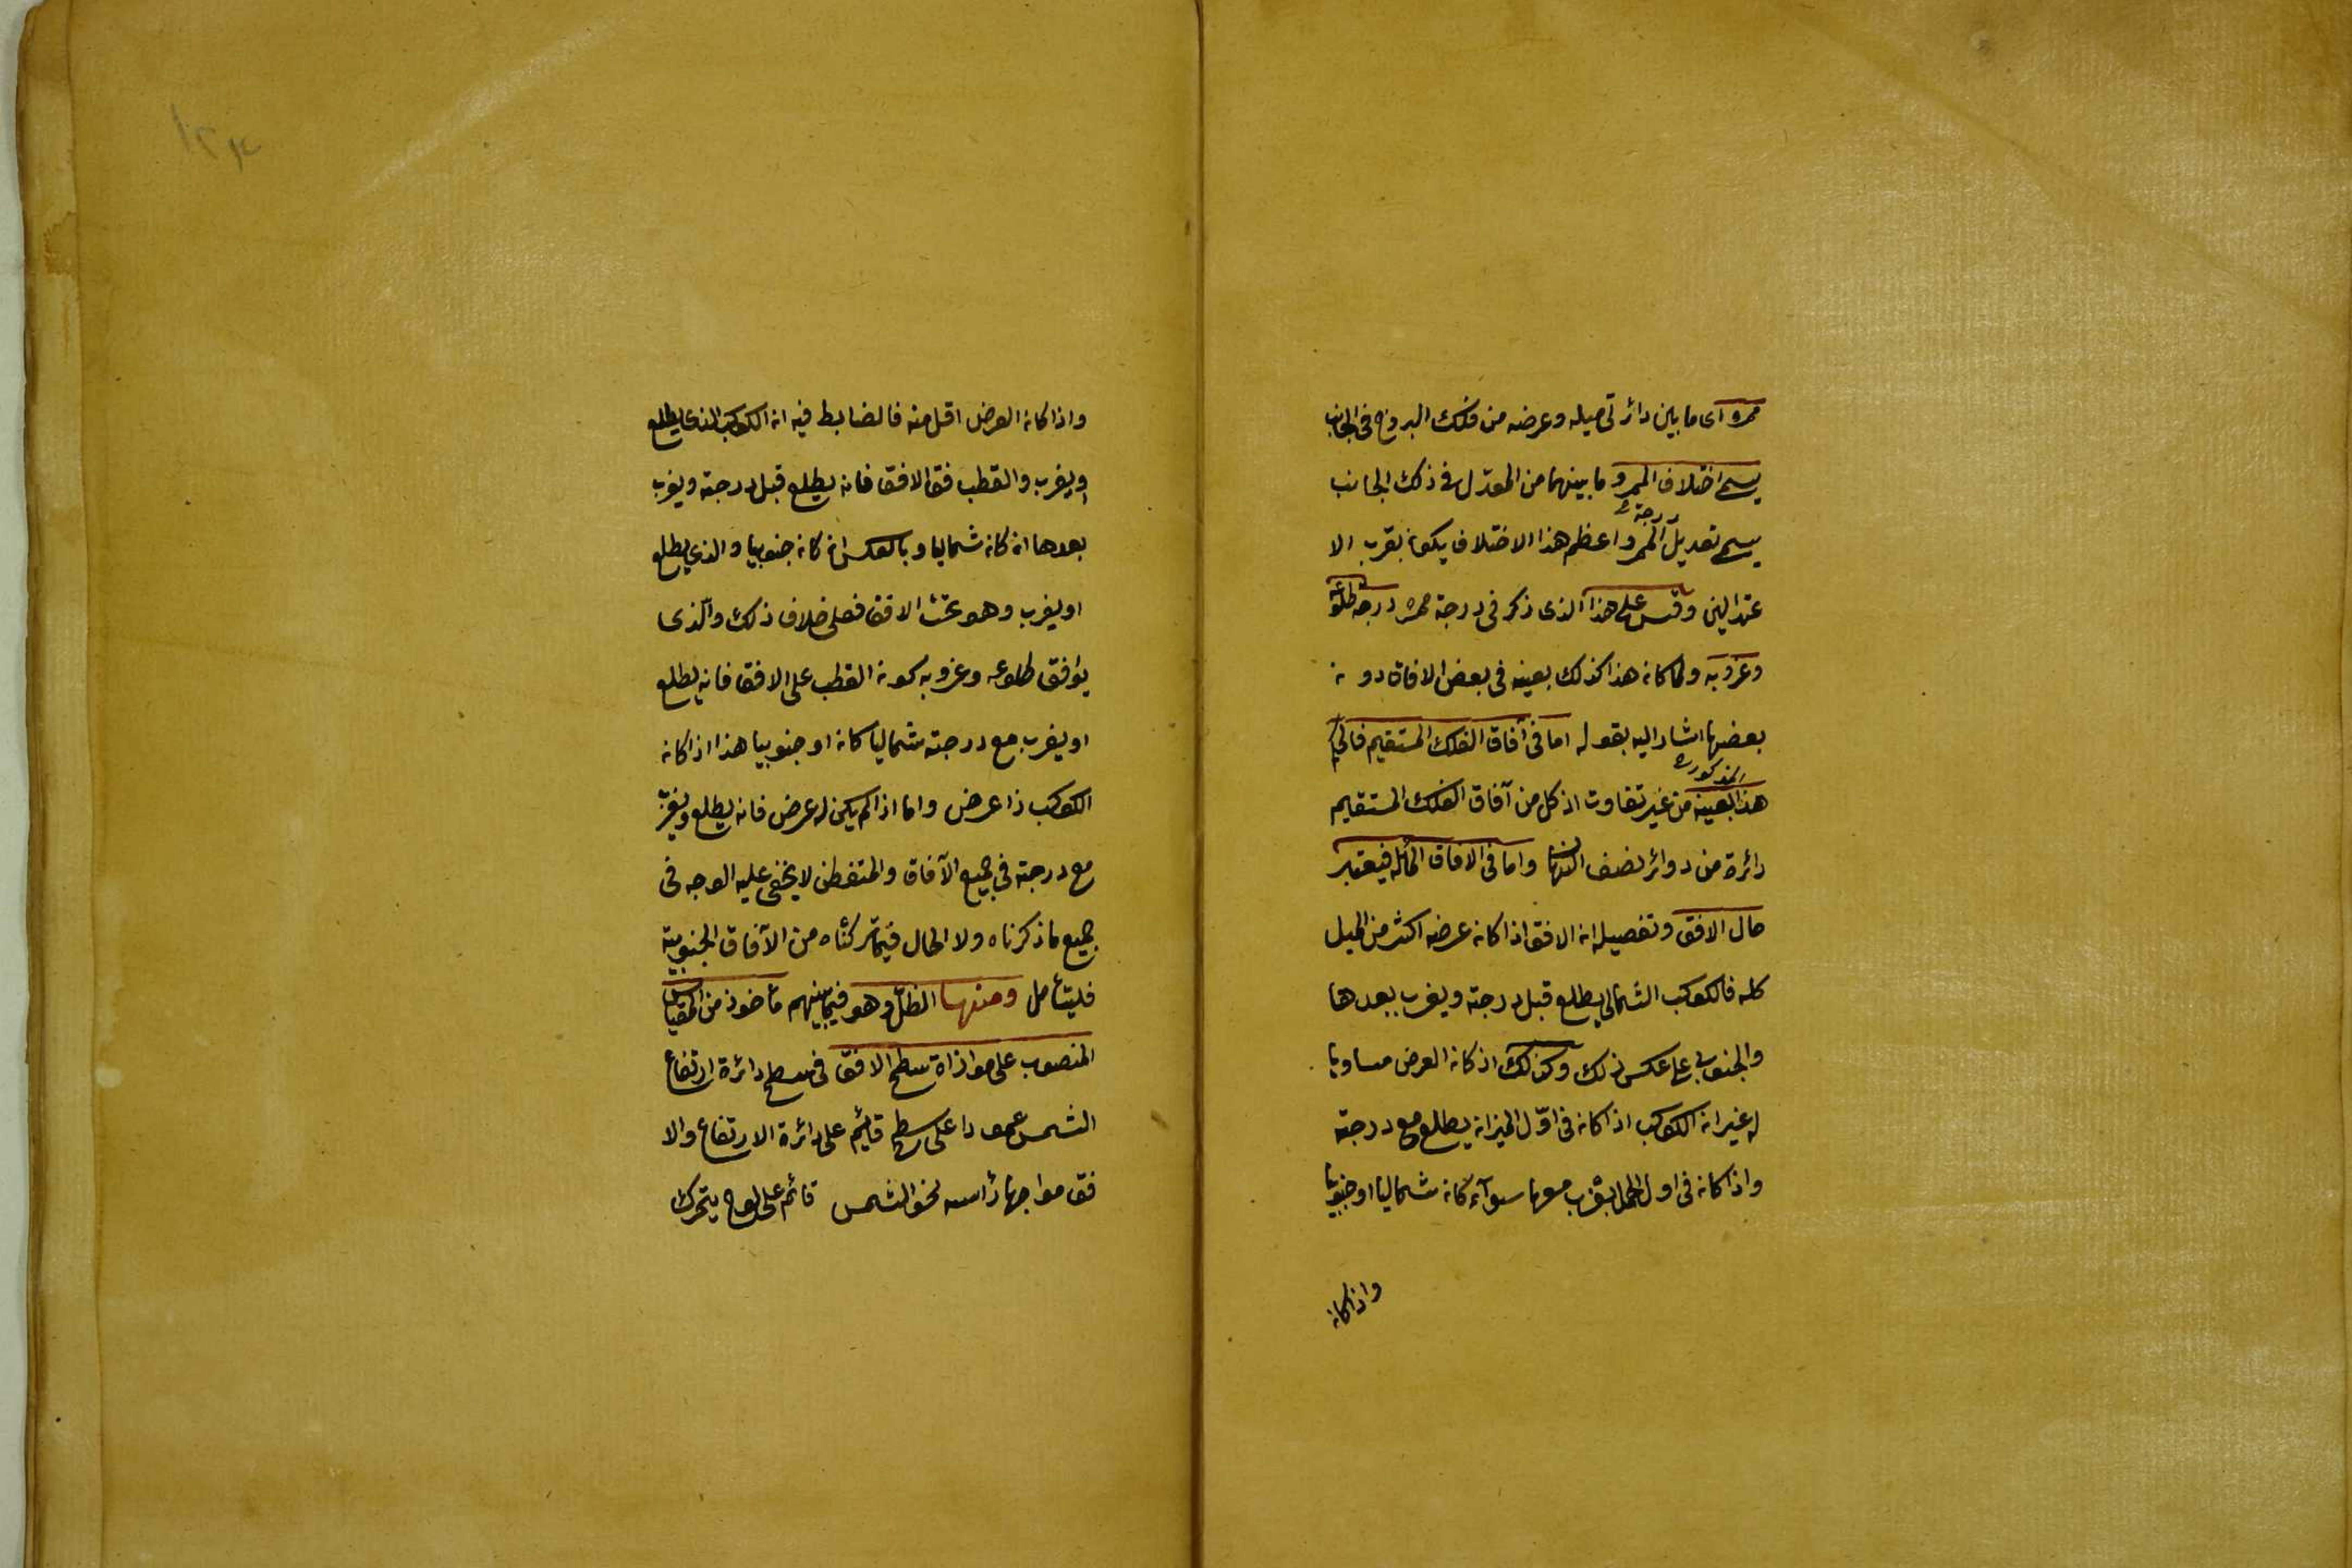 ممره اى ما بين دائرتى ميله وعرضه من فلك البروج فى الجانب
يسمى اختلاف الممر وما بينهما من المعدّل فى ذلك الجانب
يسمى تعديل درجة الممر واعظم هذا الاختلاف يكون بقرب الا
عتدالين وقس على هذا الذى ذكر فى درجة ممره درجة طلوعه
وغروبه ولما كان هذا كذلك بعينه فى بعض الافاق دون
بعضها اشار اليه بقوله اما فى آفاق الفلك المستقيم فالحكم
هذا بعينه المذكورة من غير تفاوت اذ كل من آفاق الفلك المستقيم
دائرة من دوائر نصف النهار واما فى الافاق المائلة فيعتبر
حال الافق وتفصيله ان الافق اذا كان عرضه اكثر من الميل
كله فالكوكب الشمالى يطلع قبل درجته ويغرب بعدها
والجنوبى على عكس ذلك وكذلك اذ كان العرض مساويا
له غير ان الكوكب اذا كان فى اوّل الميزان يطلع مع درجته
واذا كان فى اول الحمل يغرب معها سوآء كان شماليا او جنوبيا
واذا كان
١٢٤
واذا كان العرض اقل منه فالضابط فيه ان الكوكب الذى يطلع
او يغرب والقطب فوق الافق فانه يطلع قبل درجته ويغرب
بعدها ان كان شماليا وبالعكس ان كان جنوبيا والذى يطلع
او يغرب وهو تحت الافق فعلى خلاف ذلك والّذى
يوافق طلوعه وغروبه كون القطب على الافق فانه يطلع
او يغرب مع درجته شماليا كان او جنوبيا هذا اذا كان
الكوكب ذا عرض واما اذا لم يكن له عرض فانه يطلع ويغرب
مع درجته فى جميع الآفاق والمتفطن لا يخفى عليه الوجه فى
جميع ما ذكرناه ولا الحال فيما تركناه من الآفاق الجنوبية
فليتأمل ومنها الظلّ وهو فيما بينهم مأخوذ من المقياس
المنصوب على موازاة سطح الافق فى سطح دائرة ارتفاع
الشمس عمودا على سطح قائم على دائرة الارتفاع والا
فق مواجها رأسه نحو الشمس قائم على لوح يتحرك